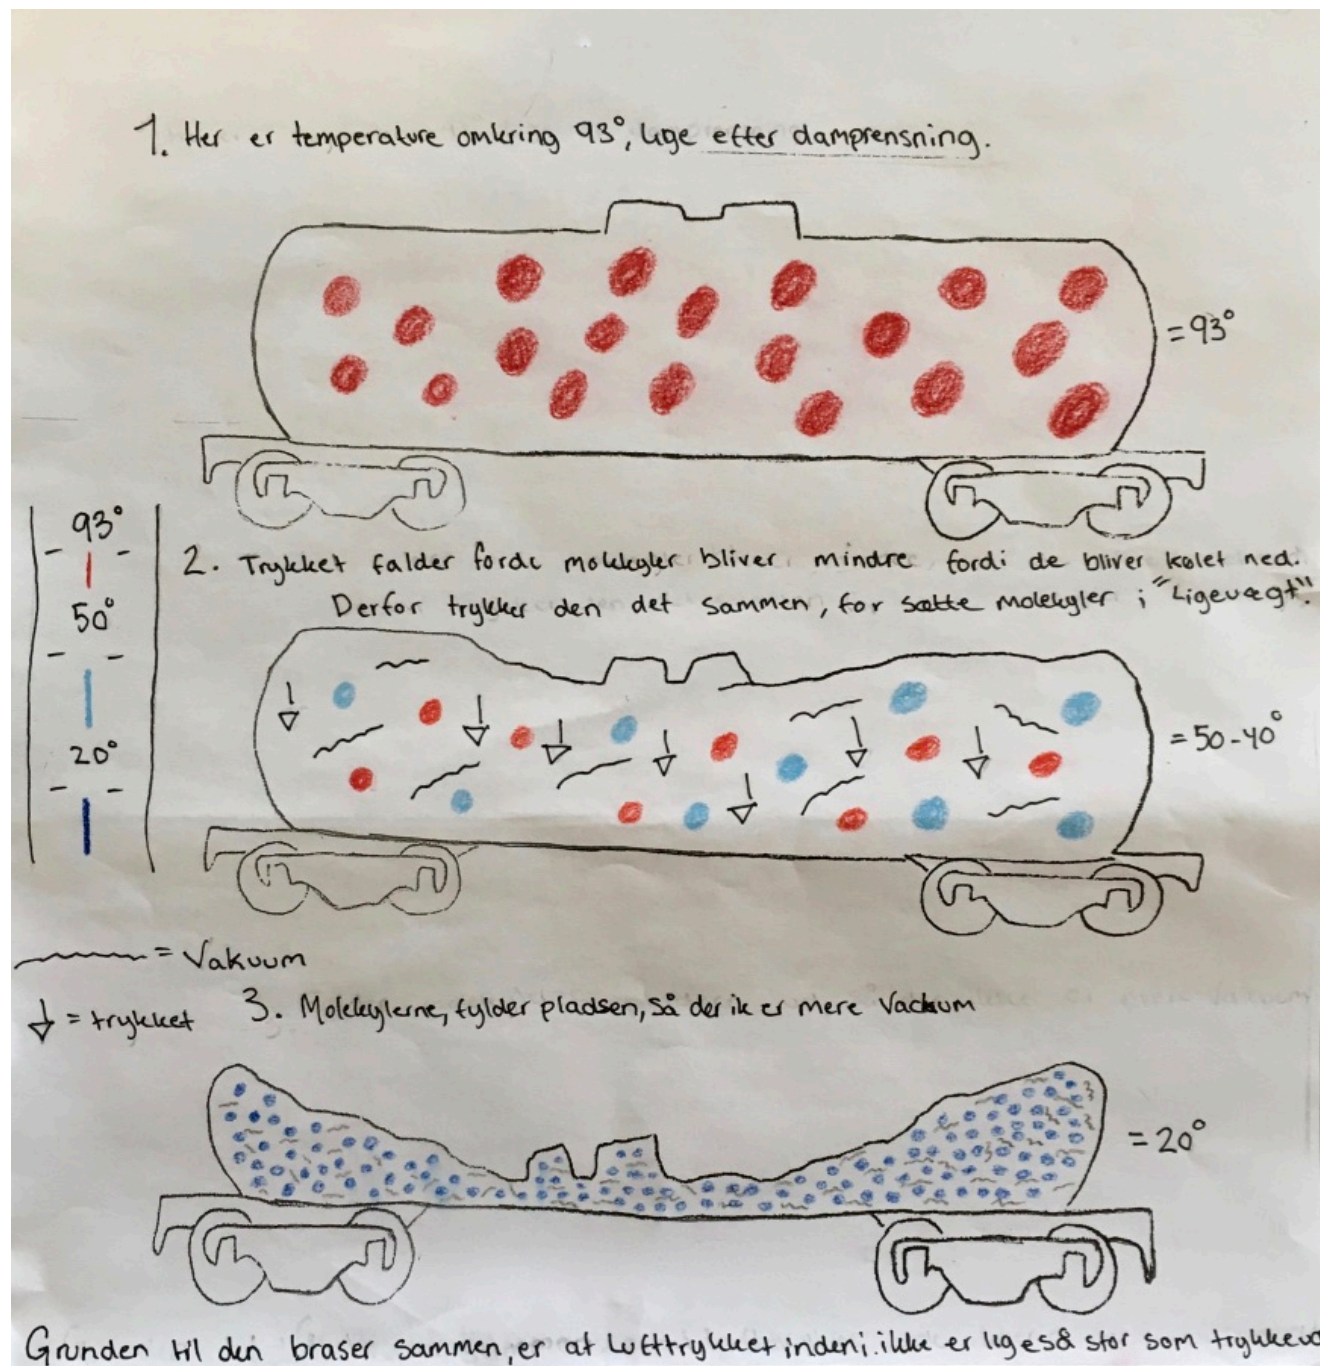 1. Her er temperature omkring 93°, lige efter damprensning.
= 93°
93°
50°
20°
2. Trykket falder fordi molekyler bliver mindre fordi de bliver kølet ned.
Derfor trykker den det sammen, for sætte molekyler i "Ligevægt".
= 50-40°
= Vakuum
= trykket
3. Molekylerne, fylder pladsen, så der ik er mere Vackum
= 20°
Grunden til den braser sammen, er at lufttrykket indeni ikke er ligeså stor som